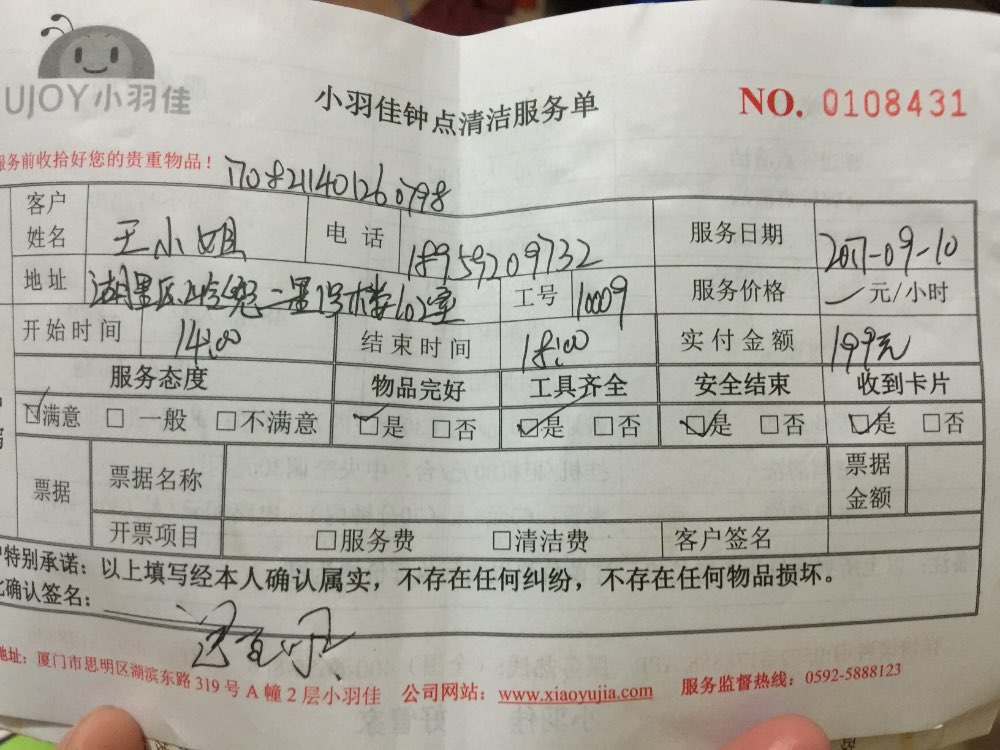 UJOY小羽佳
小羽佳钟点清洁服务单
NO. 0108431
服务前收拾好您的贵重物品！
170821140126 0798
客户姓名 王小姐 电话 18959209732 服务日期 2017-09-10
地址 湖里区 一里19号楼602室 工号 10009 服务价格 元/小时
开始时间 14:00 结束时间 18:00 实付金额 199元
服务态度 物品完好 工具齐全 安全结束 收到卡片
☑满意 □一般 □不满意 ☑是 □否 ☑是 □否 ☑是 □否 ☑是 □否
票据 票据名称 票据金额
开票项目 □服务费 □清洁费 客户签名
特别承诺：以上填写经本人确认属实，不存在任何纠纷，不存在任何物品损坏。
确认签名：
地址：厦门市思明区湖滨东路319号A幢2层小羽佳 公司网站：www.xiaoyujia.com 服务监督热线：0592-5888123